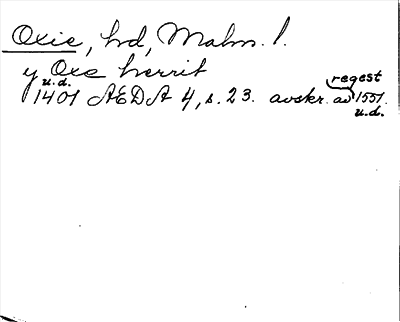 Oxie, hd, Malm. l.
y Oxe herrit
u.d. regest
1401 AEDA 4, s. 23. avskr. av 1551.
u.d.